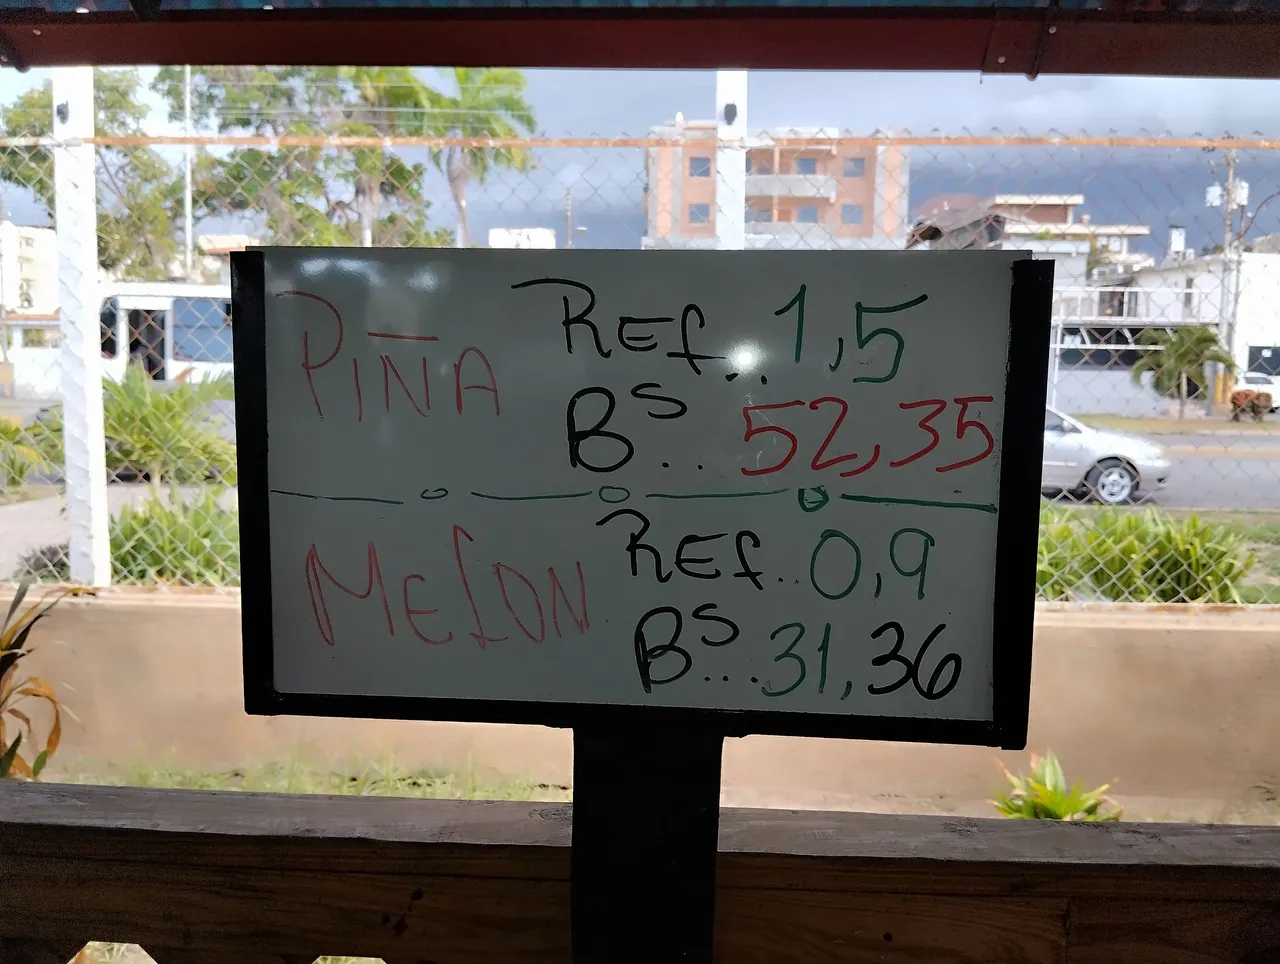 PIÑA
REf... 1,5
BS... 52,35
MELON
REf... 0,9
BS... 31,36